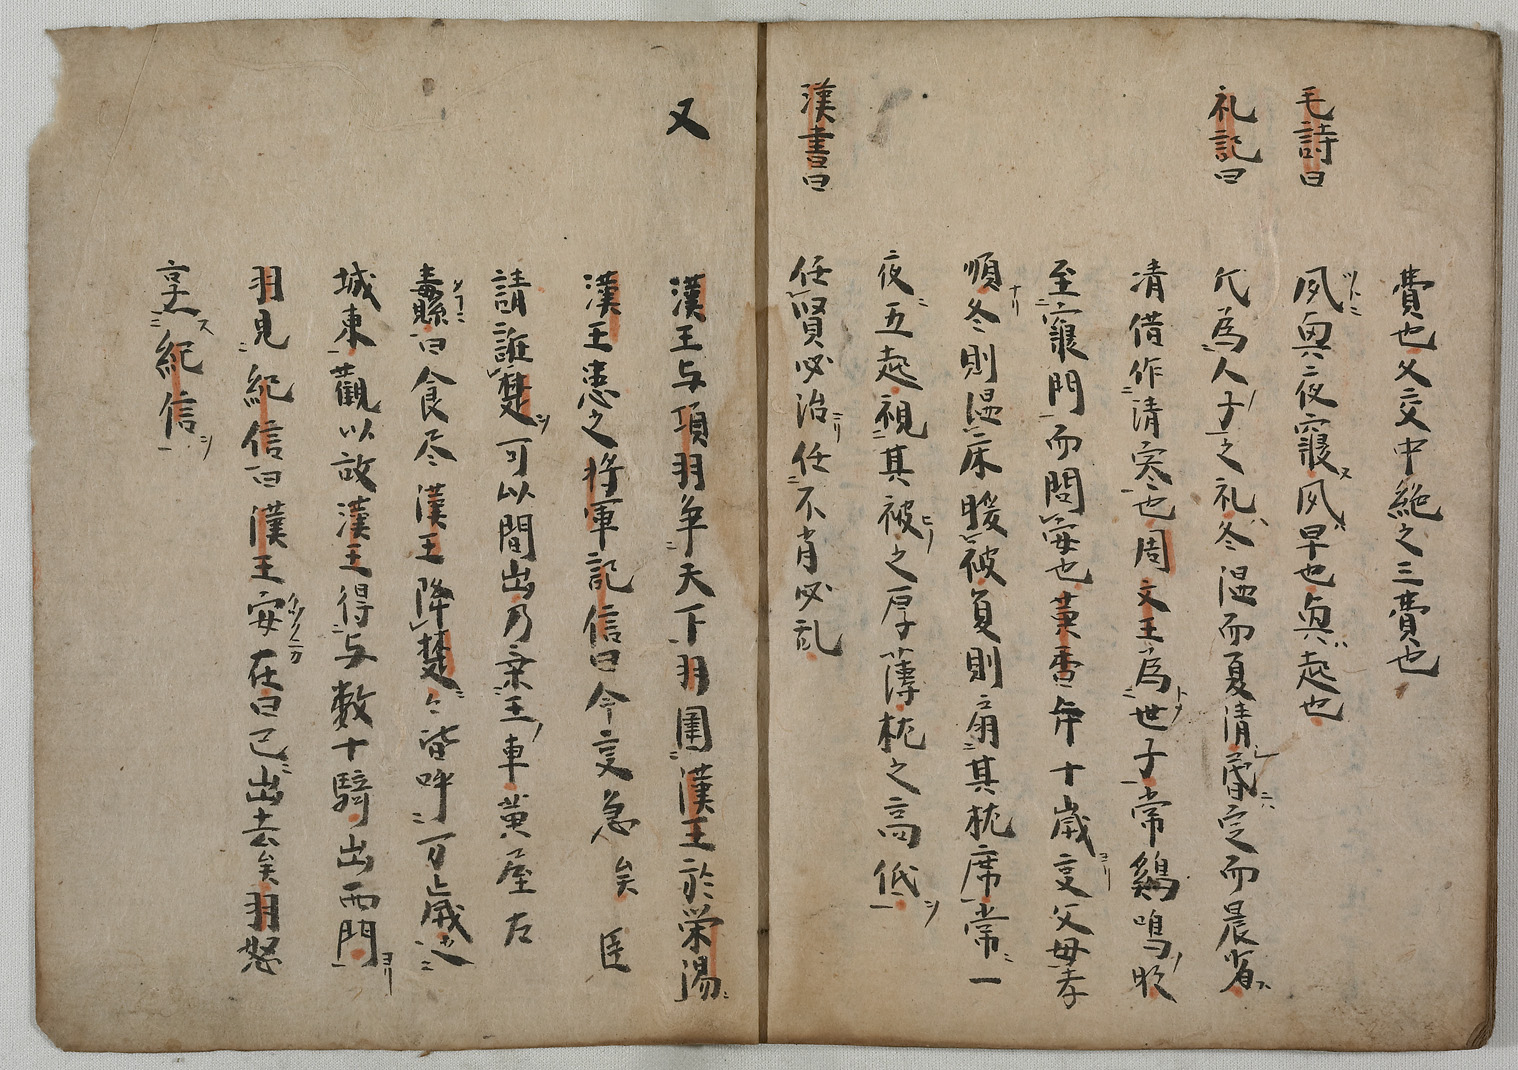 費也父交中絶之三費也
毛詩曰
夙興夜寝夙早也興起也
礼記曰
凡為人子之礼冬温而夏清昏定而晨省
清借作清寒也周文王為世子常鷄鳴
至寝門而問安也黄香年十歳事父母孝
順冬則温床暖被夏則扇其枕席常一
夜五起視其被之厚薄枕之高低
漢書曰
任賢必治任不肖必乱
又
漢王与項羽争天下羽圍漢王於栄陽
漢王患之将軍記信曰今事急矣臣
請誑楚可以間出乃乗王車黄屋左
毒縣曰食尽漢王降楚〻皆呼万歳之
城東觀以故漢王得与数十騎出西門
羽見紀信曰漢王安在曰已出去矣羽怒
烹紀信